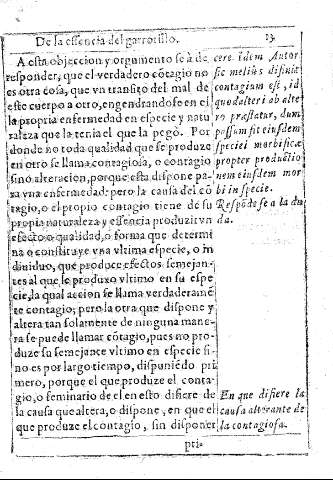 De la essencia del garrotillo.
13
A esta objeccion y orgumento se à de
responder, que el verdadero cōtagio no
es otra cosa, que vn transito del mal de
este cuerpo a otro, engendrandose en el
la propria enfermedad en especie y natu
raleza que la tenia el que la pegò. Por
donde no toda qualidad que se produze
en otro se llama contagiosa, o contagio
sino alteracion, porque esta dispone pa-
ra vna enfermedad; pero la causa del cō
tagio, o el propio contagio tiene de su
propia naturaleza y essencia produzir vn
efecto o qualidad, o forma que determi
na o constituye vna vltima especie, o in
diuiduo, que produce efectos semejan-
tes al que le produxo vltimo en su espe
cie, la qual accion se llama verdaderamē
te contagio; pero la otra que dispone y
altera tan solamente de ninguna mane-
ra se puede llamar cōtagio, pues no pro
duze su semejance vltimo en especie si-
no es por largo tiempo, disponiēdo pri
mero, porque el que produze el conta-
gio, o seminario de el en esto difiere de
la causa que altera, o dispone, en que el
que produze el contagio, sin disponer
pri-
cere idem Autor
sic melius difinit
contagium est, id
quod alteri ab alte
ro præstatur, dum
possum sit eiusdem
speciei morbificæ
propter productio
nem eiusdem mor
bi in specie.
Respōdese a la du
da.
En que difiere la
causa alterante de
la contagiosa.